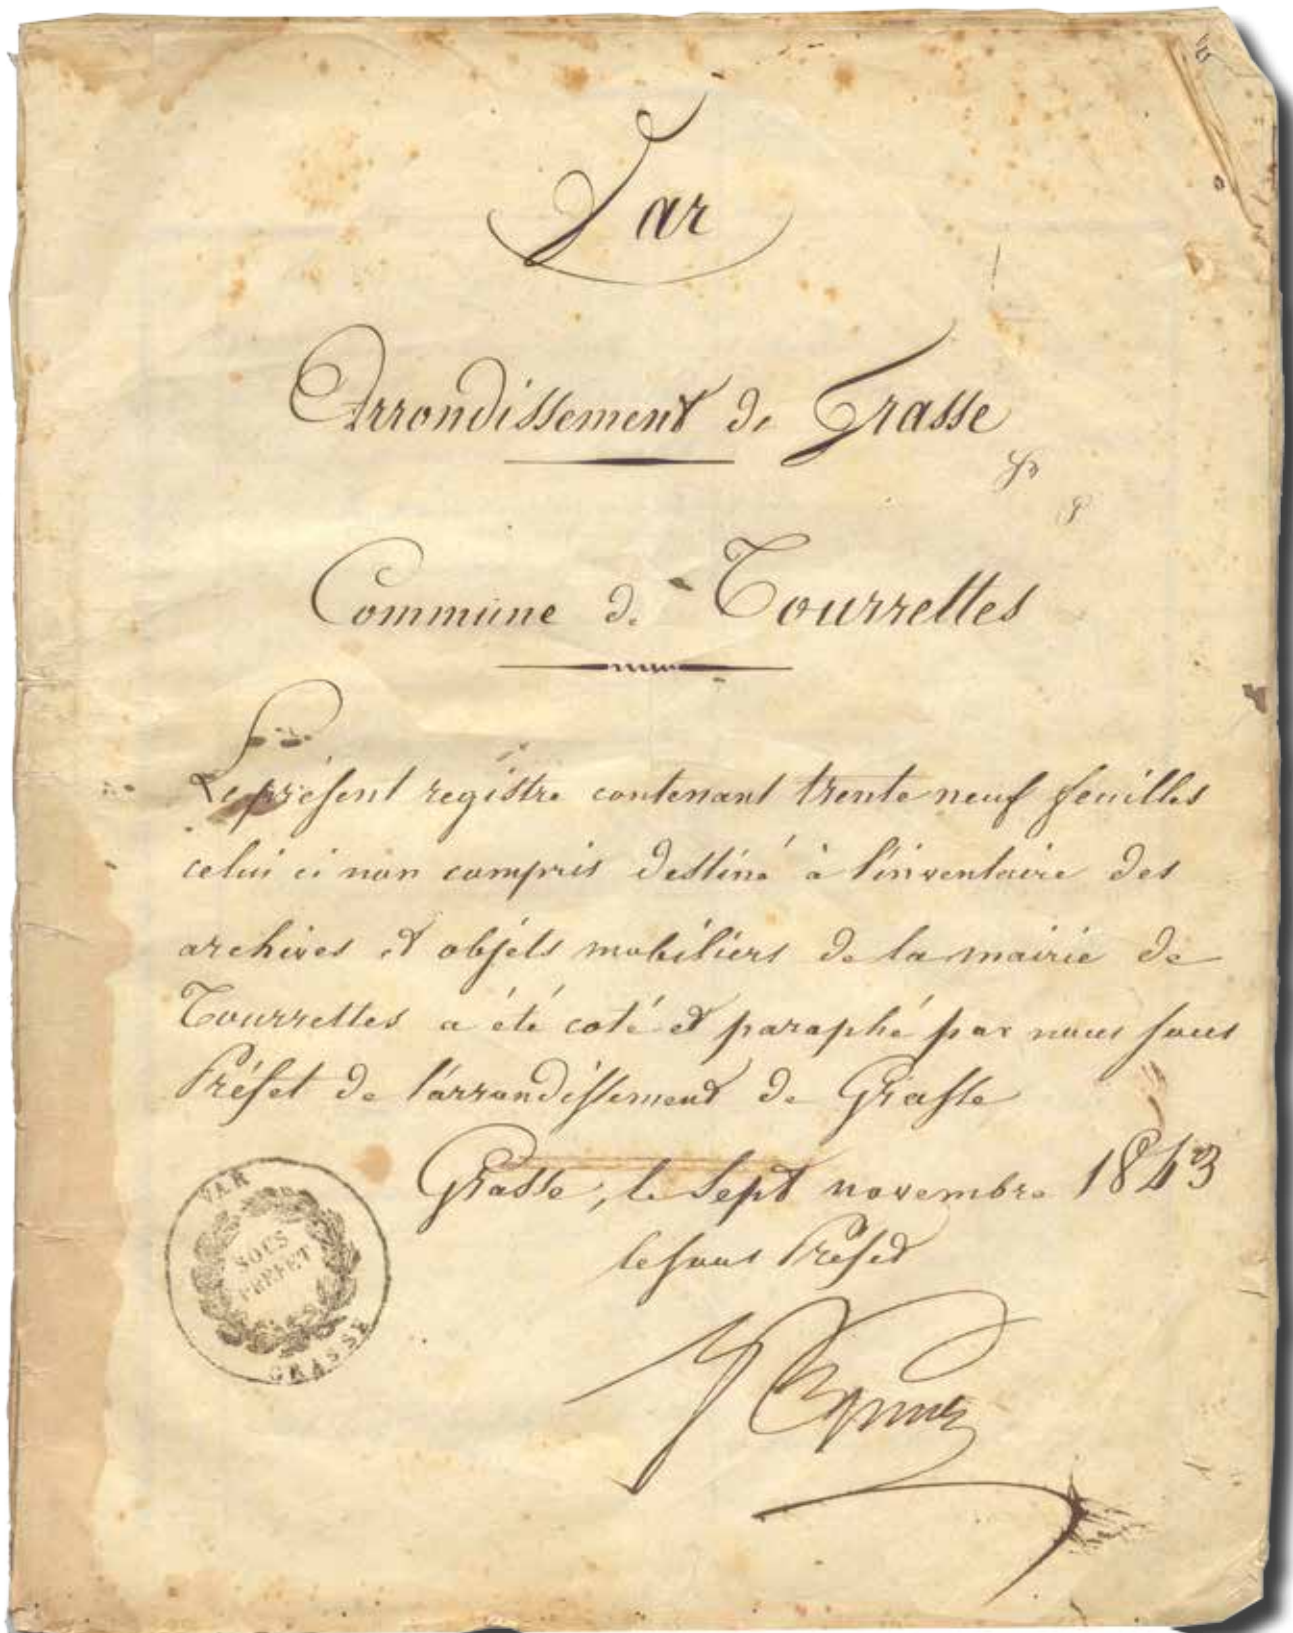 Var
Arrondissement de Grasse
Commune de Tourrettes
Le présent registre contenant trente neuf feuilles
celui ci non compris destiné à l'inventaire des
archives et objets mobiliers de la mairie de
Tourrettes a été coté et paraphé par nous sous
Préfet de l'arrondissement de Grasse
Grasse, le sept novembre 1843
le sous Préfet
VAR
SOUS
PREFET
GRASSE